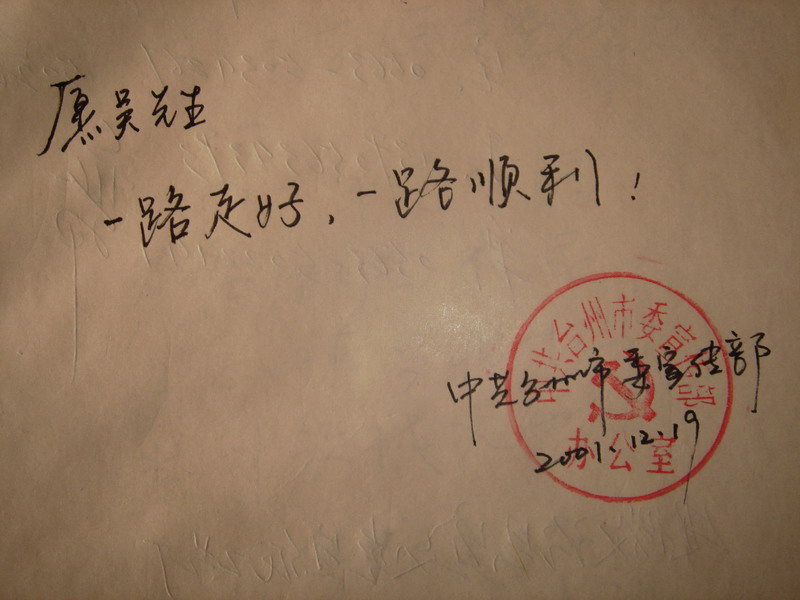 愿吴先生
一路走好，一路顺利！
中共台州市委宣传部
2001.12.19
中共台州市委宣传部
办公室